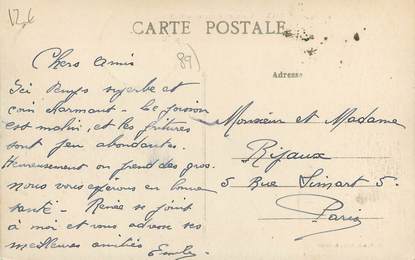 CARTE POSTALE
Adresse
89
Chers Amis
Ici temps superbe et
coin charmant - Le poisson
est malin, et les fritures
sont peu abondantes.
Heureusement on prend des gros.
nous vous espérons en bonne
santé - Renée se joint
à moi et vous adresse ses
meilleures amitiés
Monsieur et Madame
Rijaux
5 Rue Simart 5.
Paris